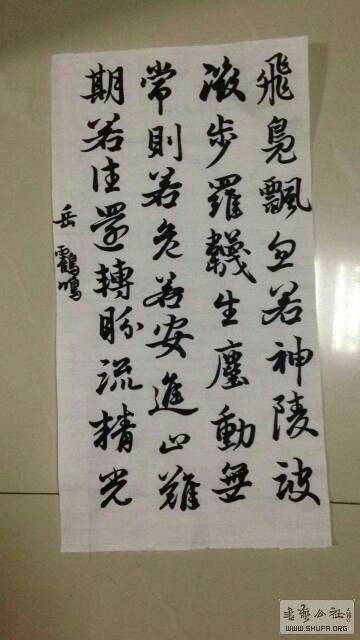 飛鳧飄忽若神陵波
微步羅韈生塵動無
常則若危若安進止難
期若往還轉盼流精光
岳鸖鳴
書藝公社
WWW.SHUFA.ORG